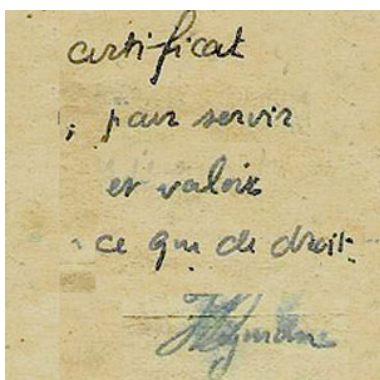 certificat
, pour servir
et valoir
ce que de droit